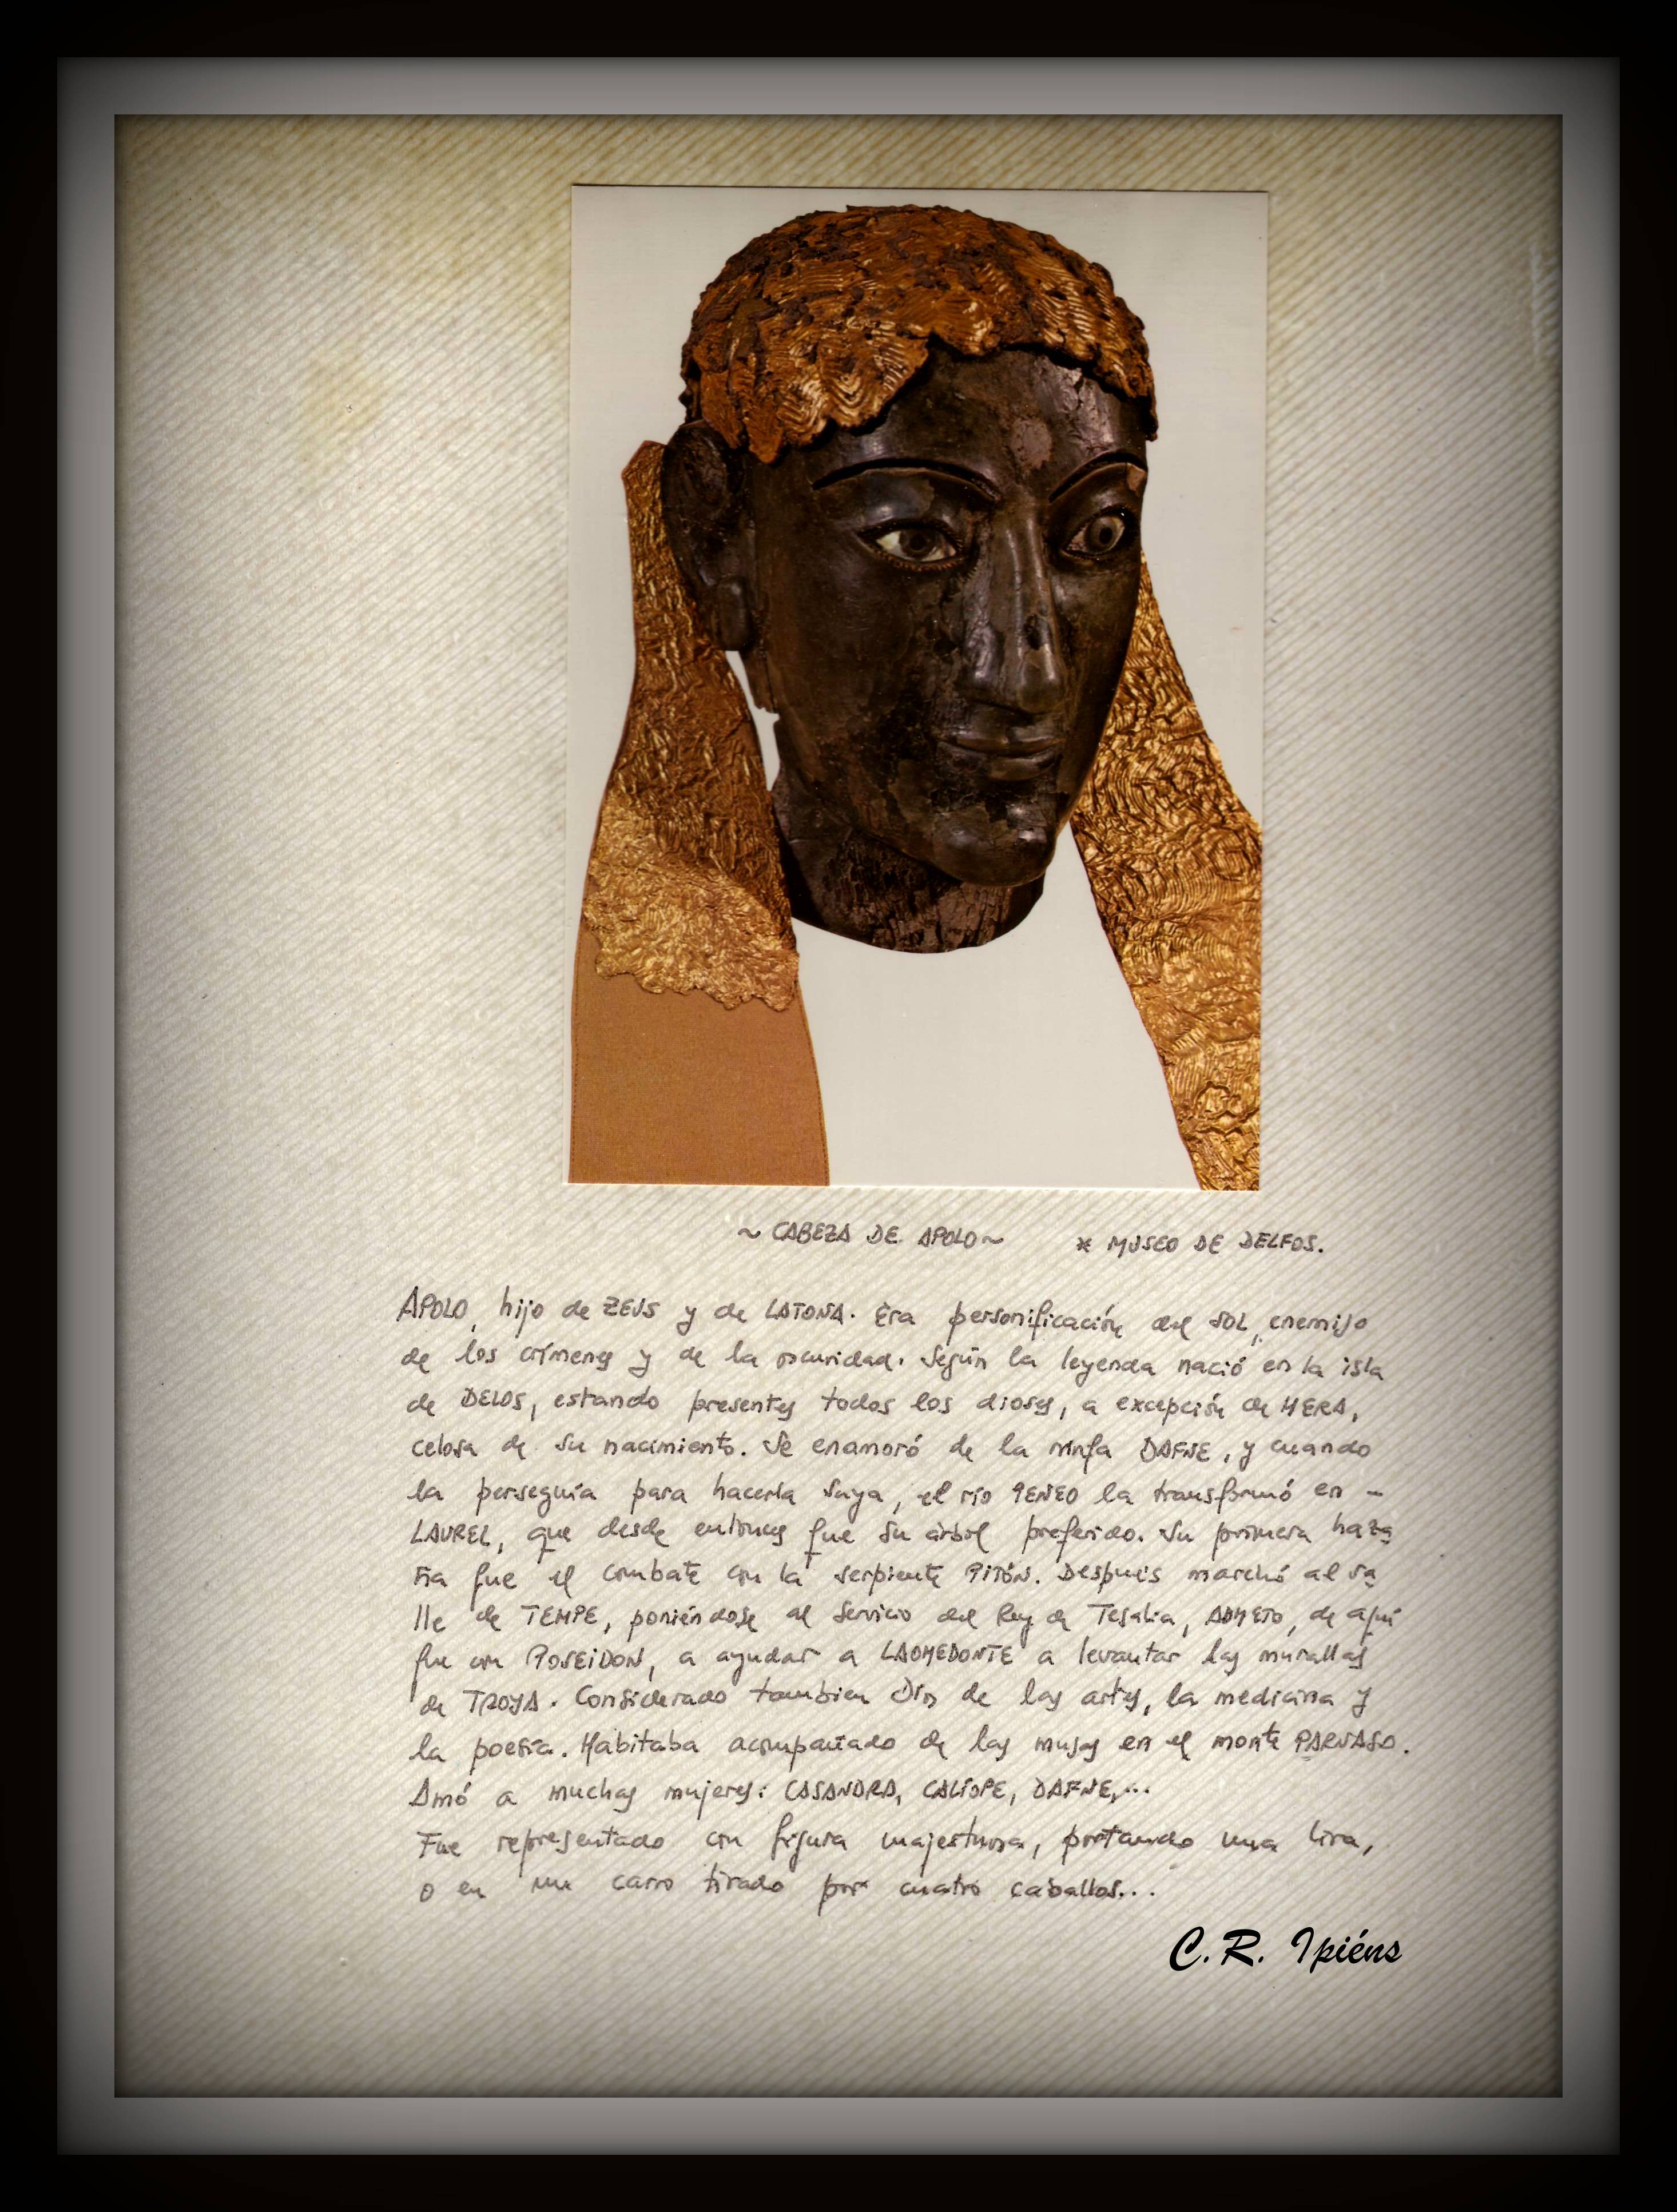 ~ CABEZA DE APOLO ~ * MUSEO DE DELFOS.
APOLO, hijo de ZEUS y de LATONA. Era personificación del SOL, enemigo
de los crímenes y de la oscuridad. Según la leyenda nació en la isla
de DELOS, estando presentes todos los dioses, a excepción de HERA,
celosa de su nacimiento. Se enamoró de la ninfa DAFNE, y cuando
la perseguía para hacerla suya, el río PENEO la transformó en -
LAUREL, que desde entonces fue su árbol preferido. Su primera haza
ña fue el combate con la serpiente PITÓN. Después marchó al va
lle de TEMPE, poniéndose al servicio del Rey de Tesalia, ADMETO, de aquí
fue con POSEIDON, a ayudar a LAOMEDONTE a levantar las murallas
de TROYA. Considerado tambien Dios de las artes, la medicina y
la poesía. Habitaba acompañado de las musas en el monte PARNASO.
Amó a muchas mujeres: CASANDRA, CALÍOPE, DAFNE,...
Fue representado con figura majestuosa, portando una lira,
o en un carro tirado por cuatro caballos...
C.R. Ipiéns